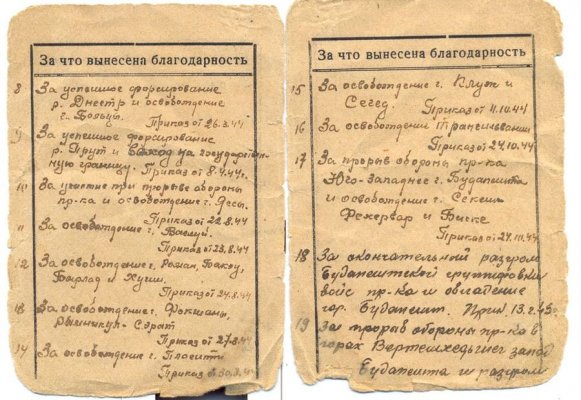 За что вынесена благодарность
8 За успешное форсирование
р. Днестр и освобождение
г. Бельцы.
Приказ от 26.3.44
9 За успешное форсирование
р. Прут и выход на государствен-
ную границу. Приказ от 8.4.44г.
10 За участие при прорыве обороны
пр-ка и освобождение г. Яссы.
Приказ от 22.8.44
11 За освобождение г. Васлуй.
Приказ от 23.8.44
12 За освобождение г. Роман, Бакэу,
Бырлад и Хуши.
Приказ от 24.8.44
13 За освобождение г. Фокшаны,
Рымникул-Сэрат
Приказ от 27.8.44
14 За освобождение г. Плоешти
Приказ 30.8.44
За что вынесена благодарность
15 За освобождение г. Клуж и
Сегед.
Приказ от 11.10.44
16 За освобождение Трансильвании
Приказ от 24.10.44
17 За прорыв обороны пр-ка
Юго-Западнее г. Будапешта
и освобождение г. Секеш
Фехервар и Бичке
Приказ от 24.10.44
18 За окончательный разгром
Будапештской группировки
войс пр-ка и овладение
гор. Будапешт. 13.2.45г.
19 За прорыв обороны пр-ка в
горах Вертешхедьшег запад
Будапешта и разгром